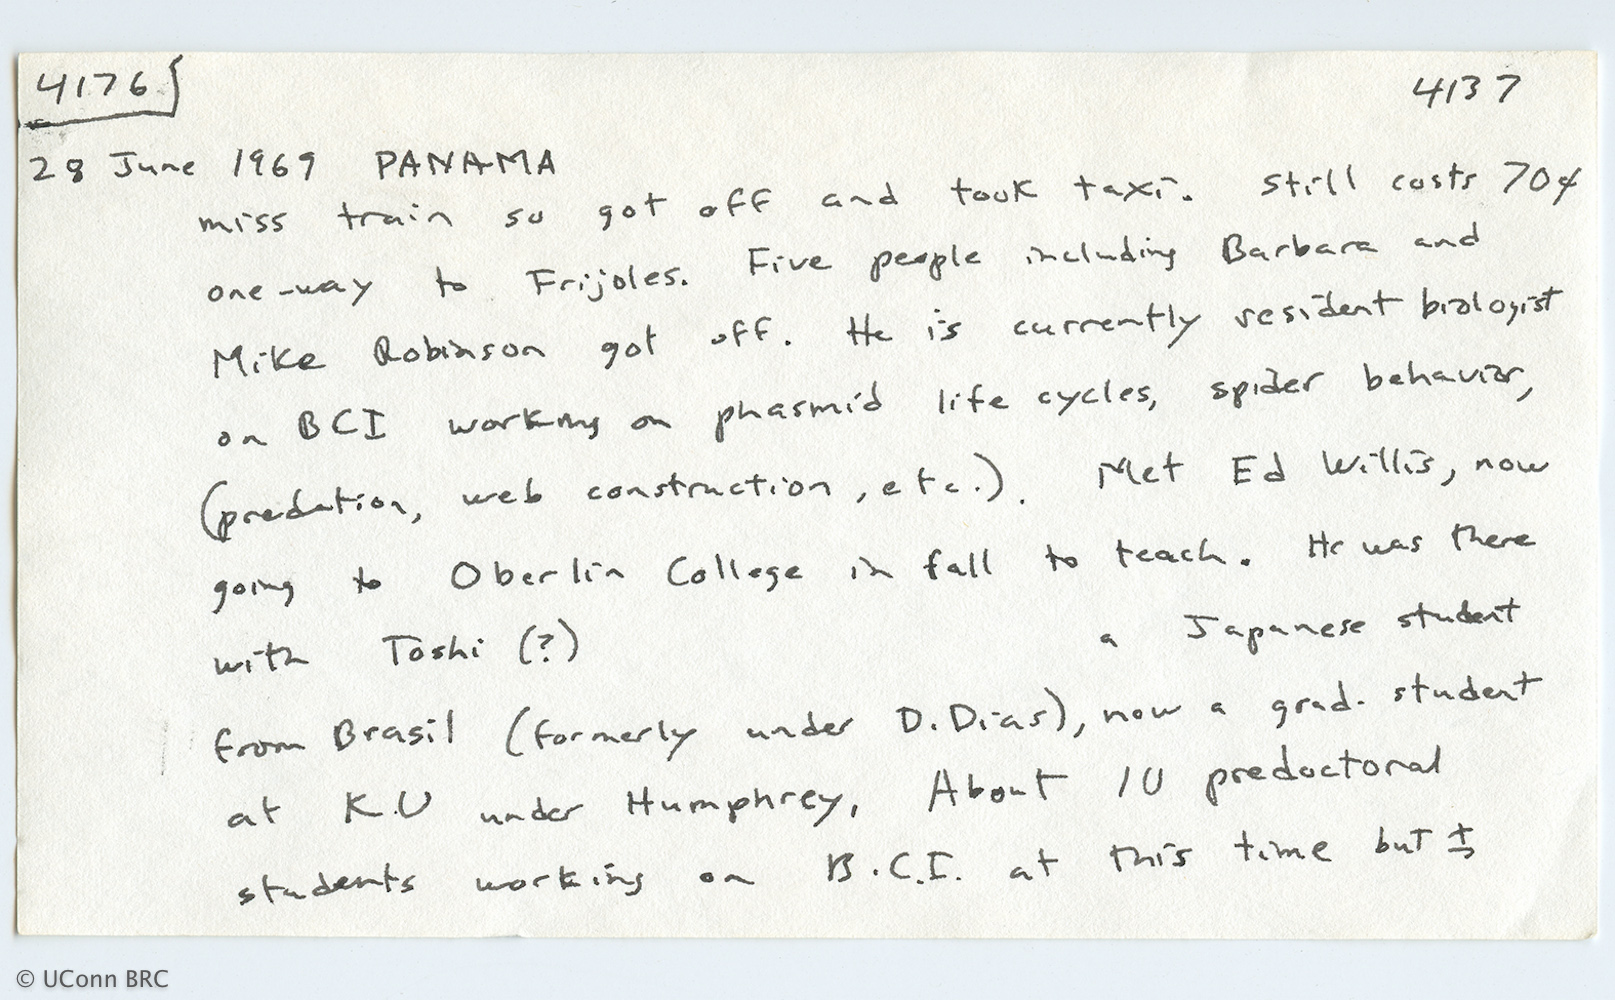 4176
4137
28 June 1969 PANAMA
miss train so got off and took taxi. Still costs 70¢
one-way to Frijoles. Five people including Barbara and
Mike Robinson got off. He is currently resident biologist
on BCI working on phasmid life cycles, spider behavior,
(predation, web construction, etc.). Met Ed Willis, now
going to Oberlin College in fall to teach. He was there
with Toshi (?) a Japanese student
from Brasil (formerly under D. Dias), now a grad. student
at K.U under Humphrey, About 10 predoctoral
students working on B.C.I. at this time but ±
© UConn BRC